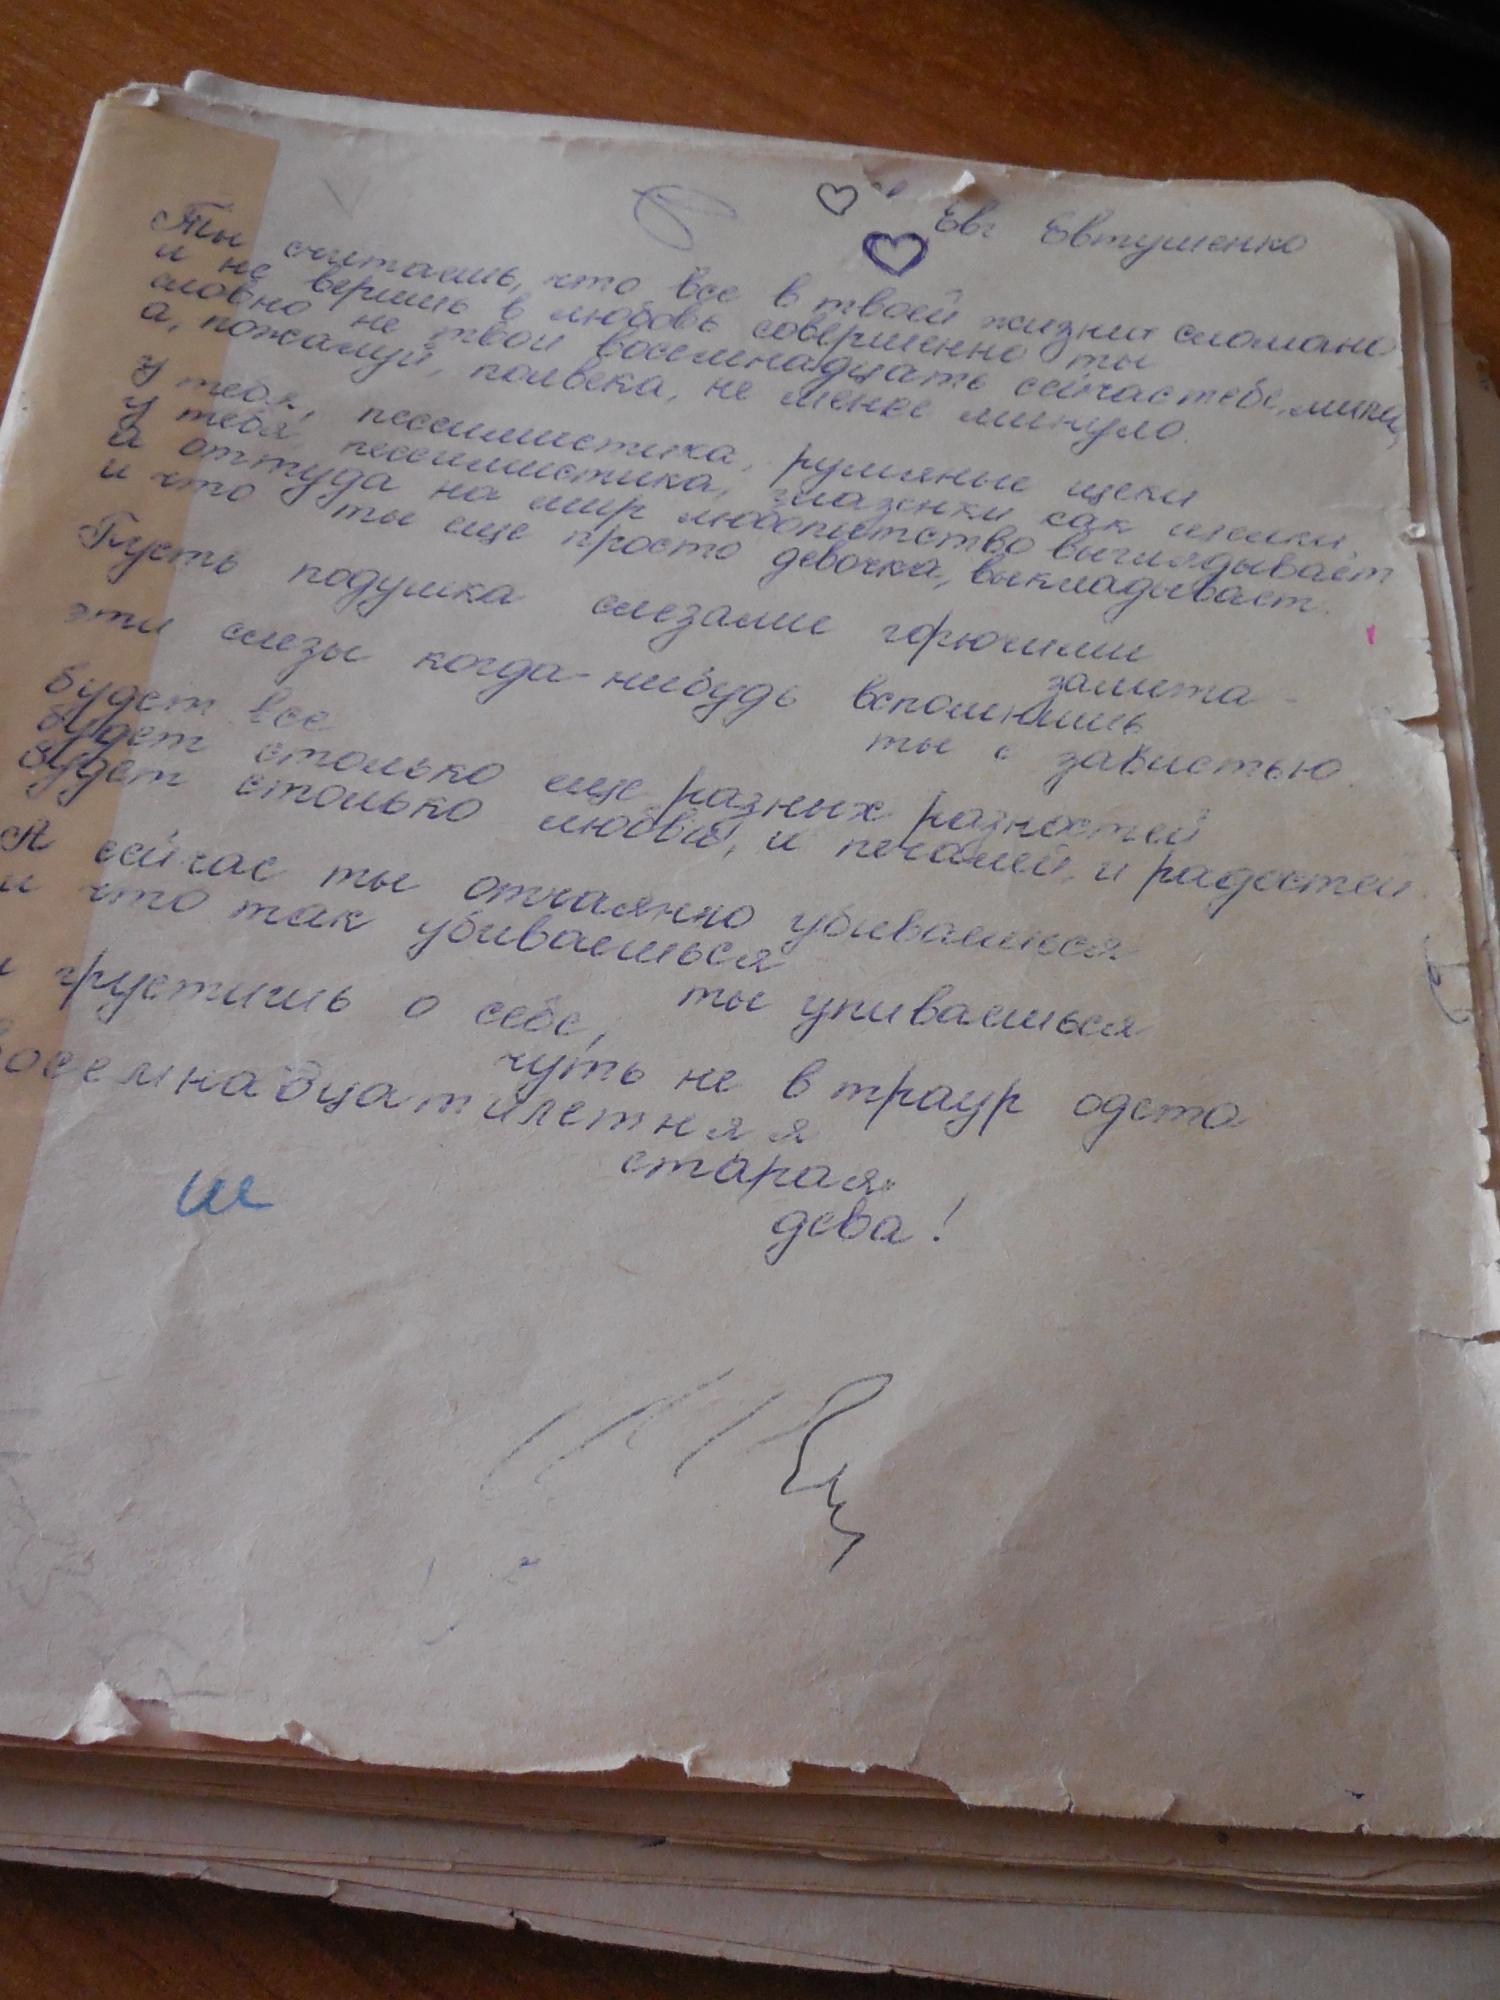 Евг Евтушенко
Ты считаешь, что все в твоей жизни сломано
и не веришь в любовь совершенно ты
словно не твои восемнадцать сейчас тебе, милая,
а, пожалуй, полвека, не менее минуло.
У тебя, пессимистика, румяные щеки
у тебя, пессимистика, глазенки как щелки
а оттуда на мир любопытство выглядывает
и что ты еще просто девочка, выкладывает.
Пусть подушка слезами горючими
залита -
эти слезы когда-нибудь вспомнишь
ты с завистью
будет все
будет столько еще разных разностей
будет столько любви, и печалей, и радостей
А сейчас ты отчаянно убиваешься
и что так убиваешься
ты упиваешься
и грустишь о себе,
чуть не в траур одета
восемнадцатилетняя
старая
дева!
ш